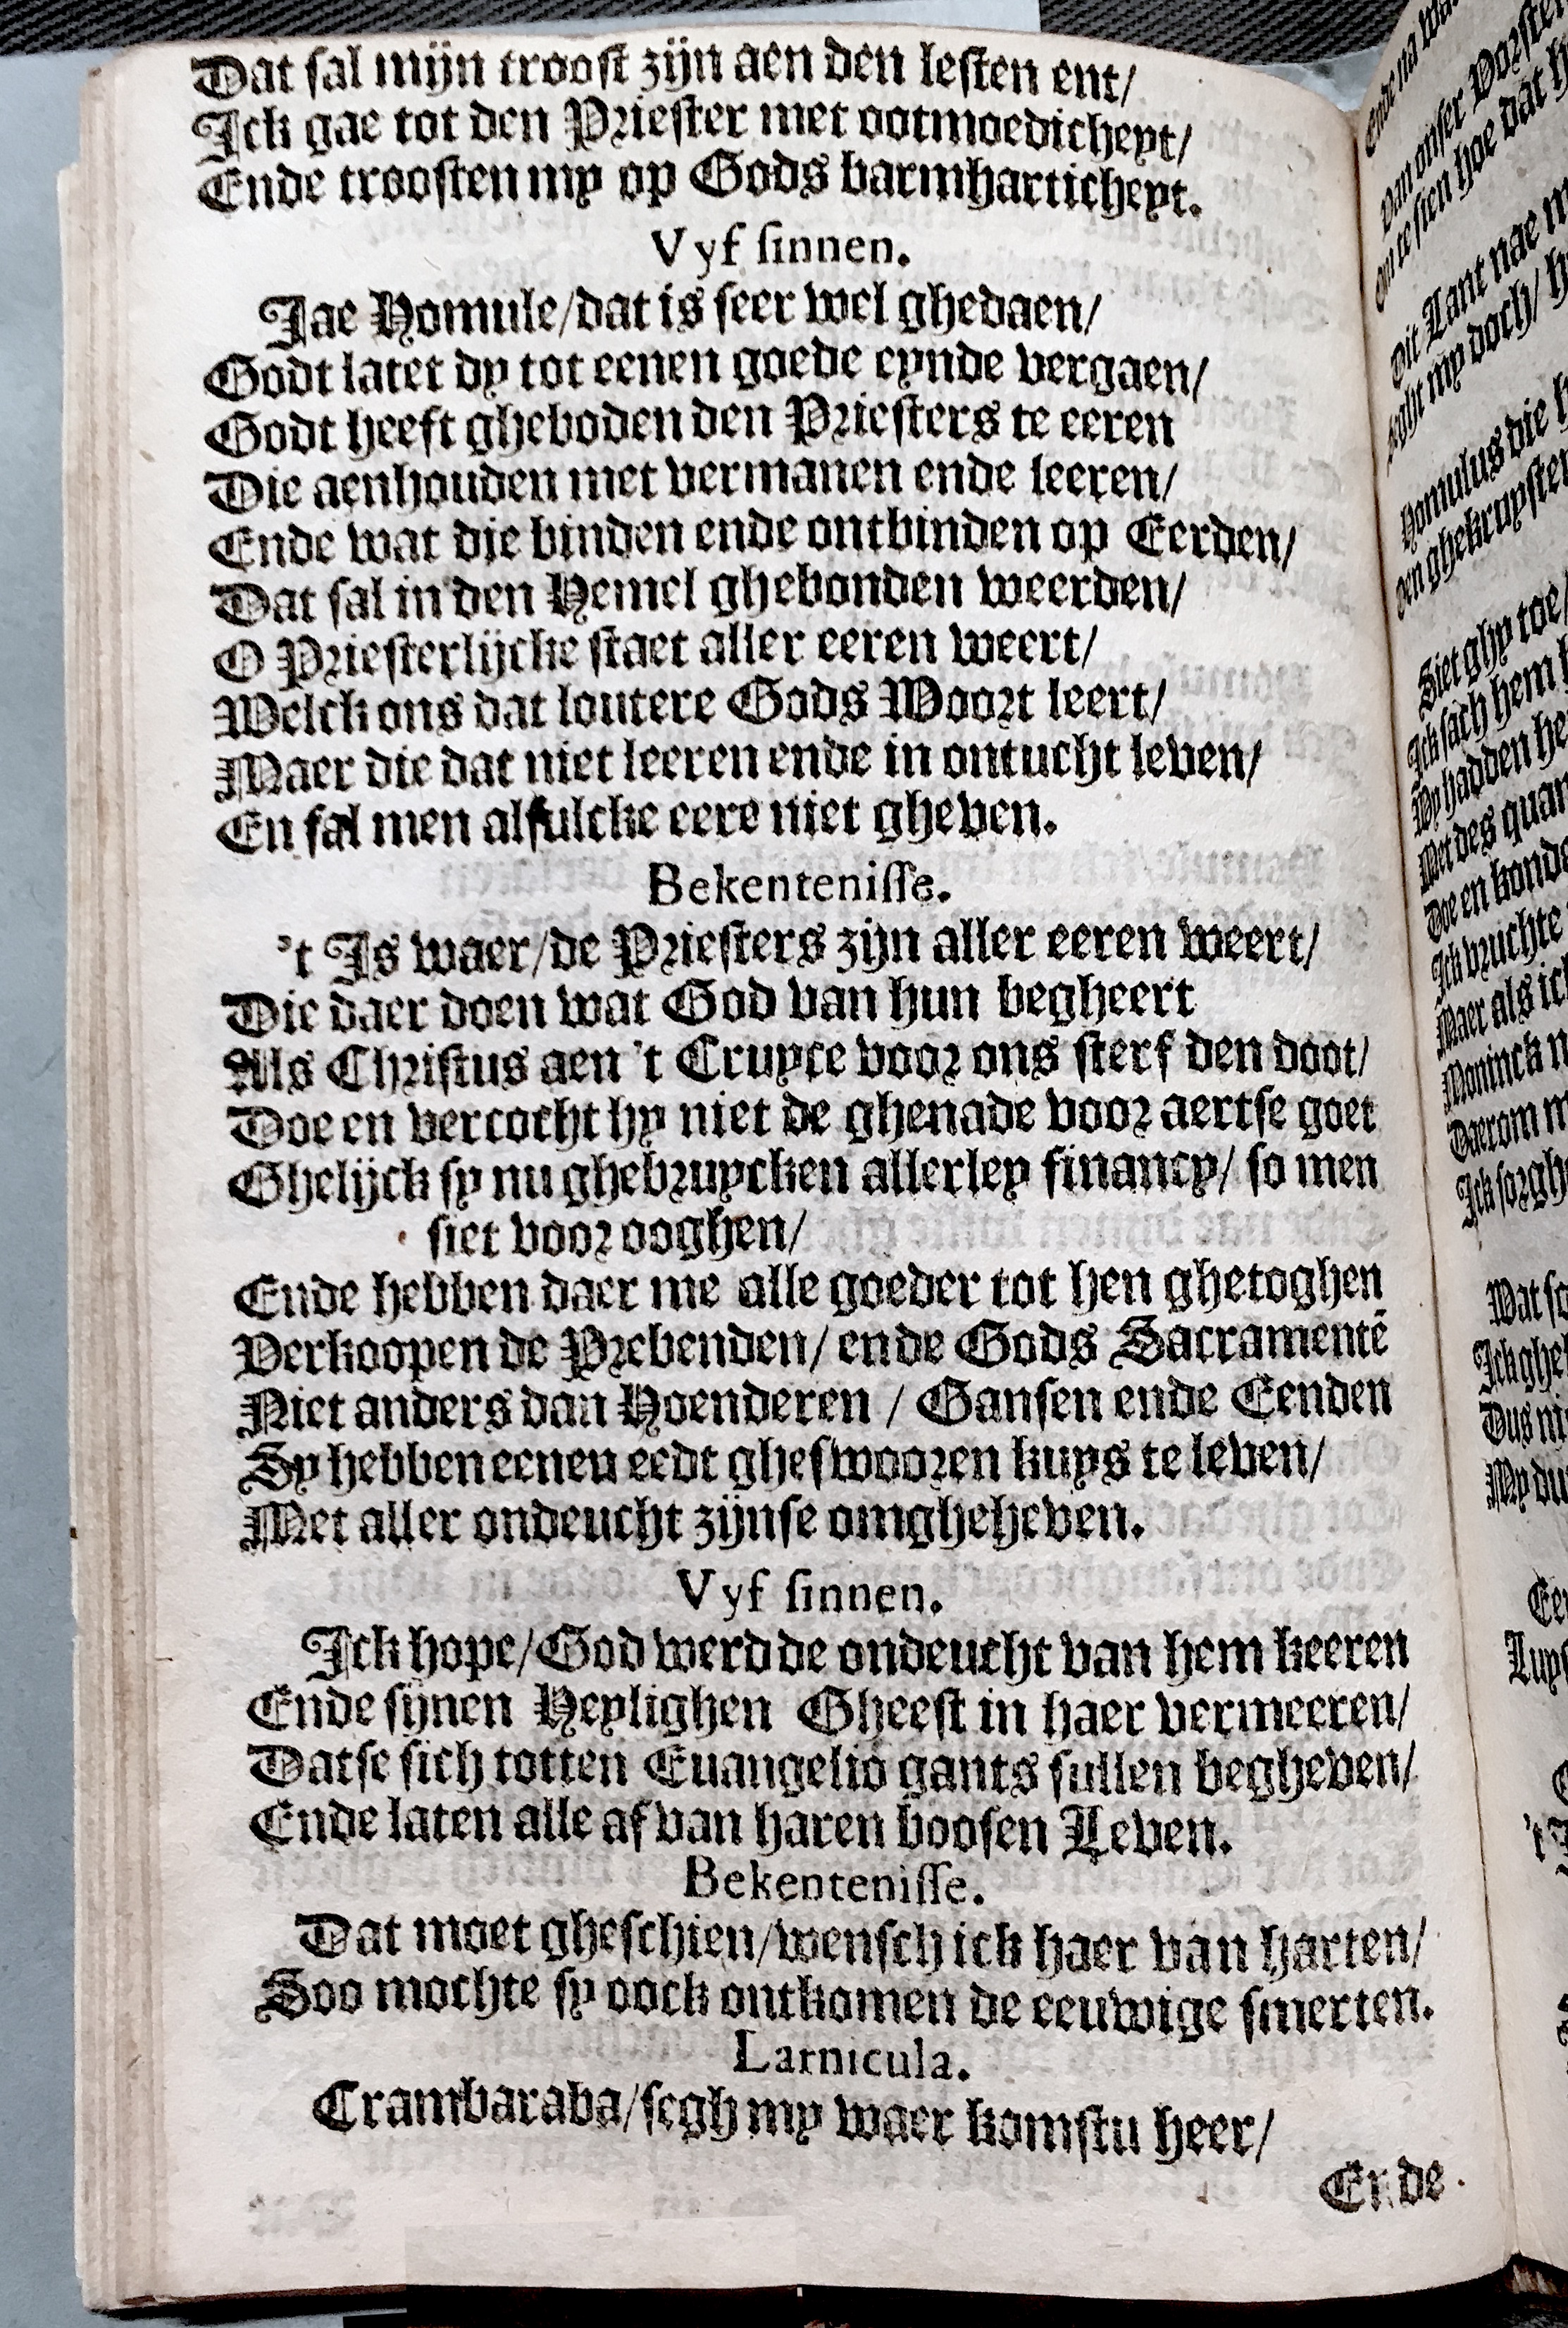 Dat sal mijn troost zijn aen den lesten ent/
Ick gae tot den Priester met ootmoedicheyt/
Ende troosten my op Gods barmharticheyt.
Vyf sinnen.
Jae Homule/dat is seer wel ghedaen/
Godt latet dy tot eenen goede eynde vergaen/
Godt heeft gheboden den Priesters te eeren
Die aenhouden met vermanen ende leeren/
Ende wat die binden ende ontbinden op Eerden/
Dat sal in den Hemel ghebonden weerden/
O Priesterlijcke staet aller eeren weert/
Welck ons dat loutere Gods Woort leert/
Maer die dat niet leeren ende in ontucht leven/
En sal men alsulcke eere niet gheven.
Bekentenisse.
't Is waer/de Priesters zijn aller eeren weert/
Die daer doen wat God van hun begheert
Als Christus aen 't Cruyce voor ons sterf den doot/
Doe en vercocht hy niet de ghenade voor aertse goet
Ghelijck sy nu ghebruycken allerley financy/ so men
siet voor ooghen/
Ende hebben daer me alle goeder tot hen ghetoghen
Verkoopen de Prebenden/ ende Gods Sacramentē
Niet anders dan Hoenderen / Gansen ende Eenden
Sy hebben eenen eedt ghesworen kuys te leven/
Met aller ondeucht zijnse omgheheven.
Vyf sinnen.
Ick hope/God werd de ondeucht van hem keeren
Ende sijnen Heylighen Gheest in haer vermeeren/
Datse sich totten Euangelio gants sullen begheven/
Ende laten alle af van haren boosen Leven.
Bekentenisse.
Dat moet gheschien/wensch ick haer van harten/
Soo mochte sy oock ontkomen de eeuwige smerten.
Larnicula.
Crambaraba/segh my waer komstu heer/
Ende
Ende na
Van onser
Om te sien hoe dat
Dit Lant nae
Seght my doch/
Homulus die
Den ghekruysten
Siet ghy toe/
Ick sach hem
Wy hadden
Met des
Doe en
Ick vruchte
Maer als
Moninck
Daerom
Ick
Wat
Ick
Dus
My